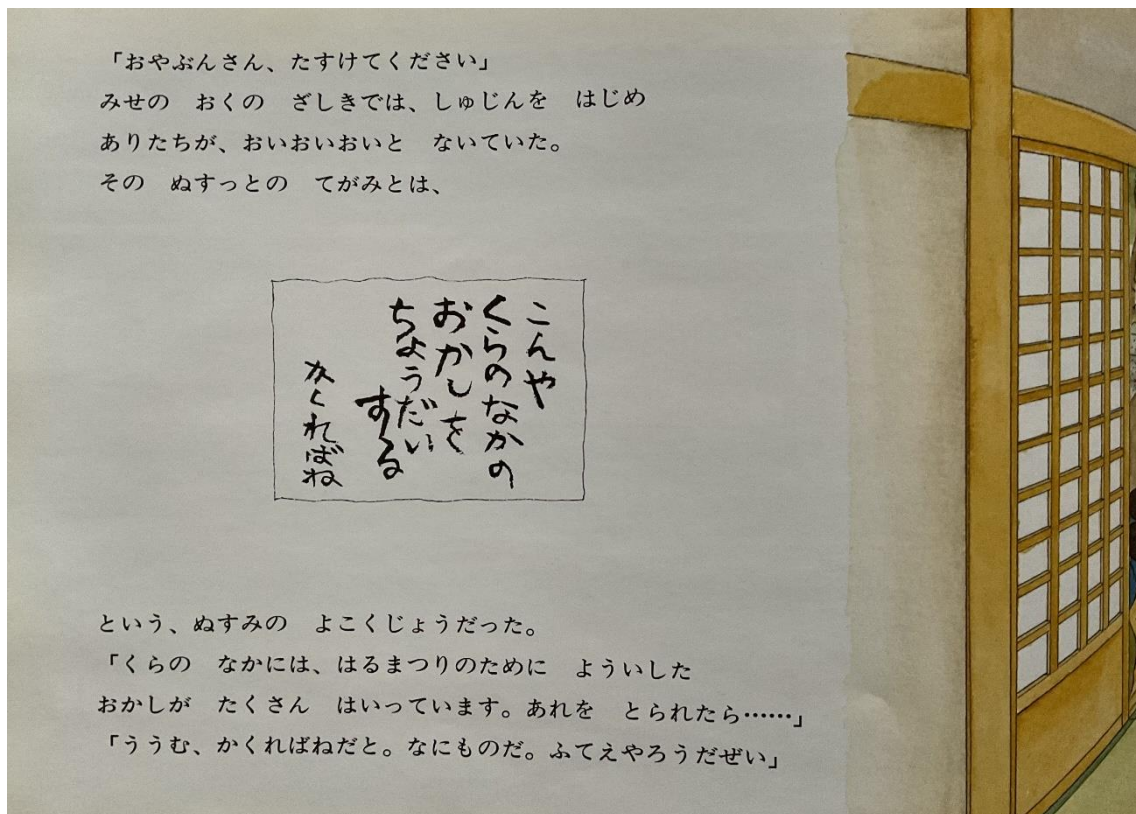 「おやぶんさん、たすけてください」
みせの　おくの　ざしきでは、しゅじんを　はじめ
ありたちが、おいおいおいと　ないていた。
その　ぬすっとの　てがみとは、
こんや
くらのなかの
おかしを
ちょうだい
する
かくればね
という、ぬすみの　よこくじょうだった。
「くらの　なかには、はるまつりのために　よういした
おかしが　たくさん　はいっています。あれを　とられたら……」
「ううむ、かくればねだと。なにものだ。ふてえやろうだぜい」